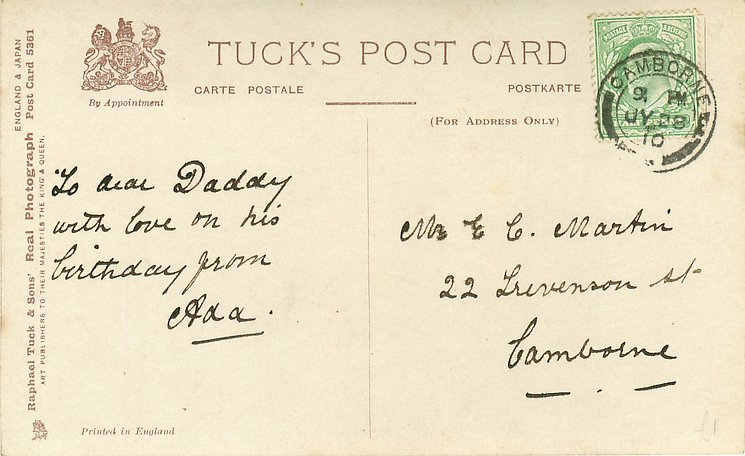 TUCK'S POST CARD
By Appointment
CARTE POSTALE
POSTKARTE
(FOR ADDRESS ONLY)
POSTAGE
CAMBORNE
9 PM
JY 28
10
To dear Daddy
with love on his
birthday from
Ada.
Mr E C. Martin
22 Trevenson st
Camborne
Raphael Tuck & Sons' Real Photograph Post Card 5361
ENGLAND & JAPAN
ART PUBLISHERS TO THEIR MAJESTIES THE KING & QUEEN.
Printed in England
£1